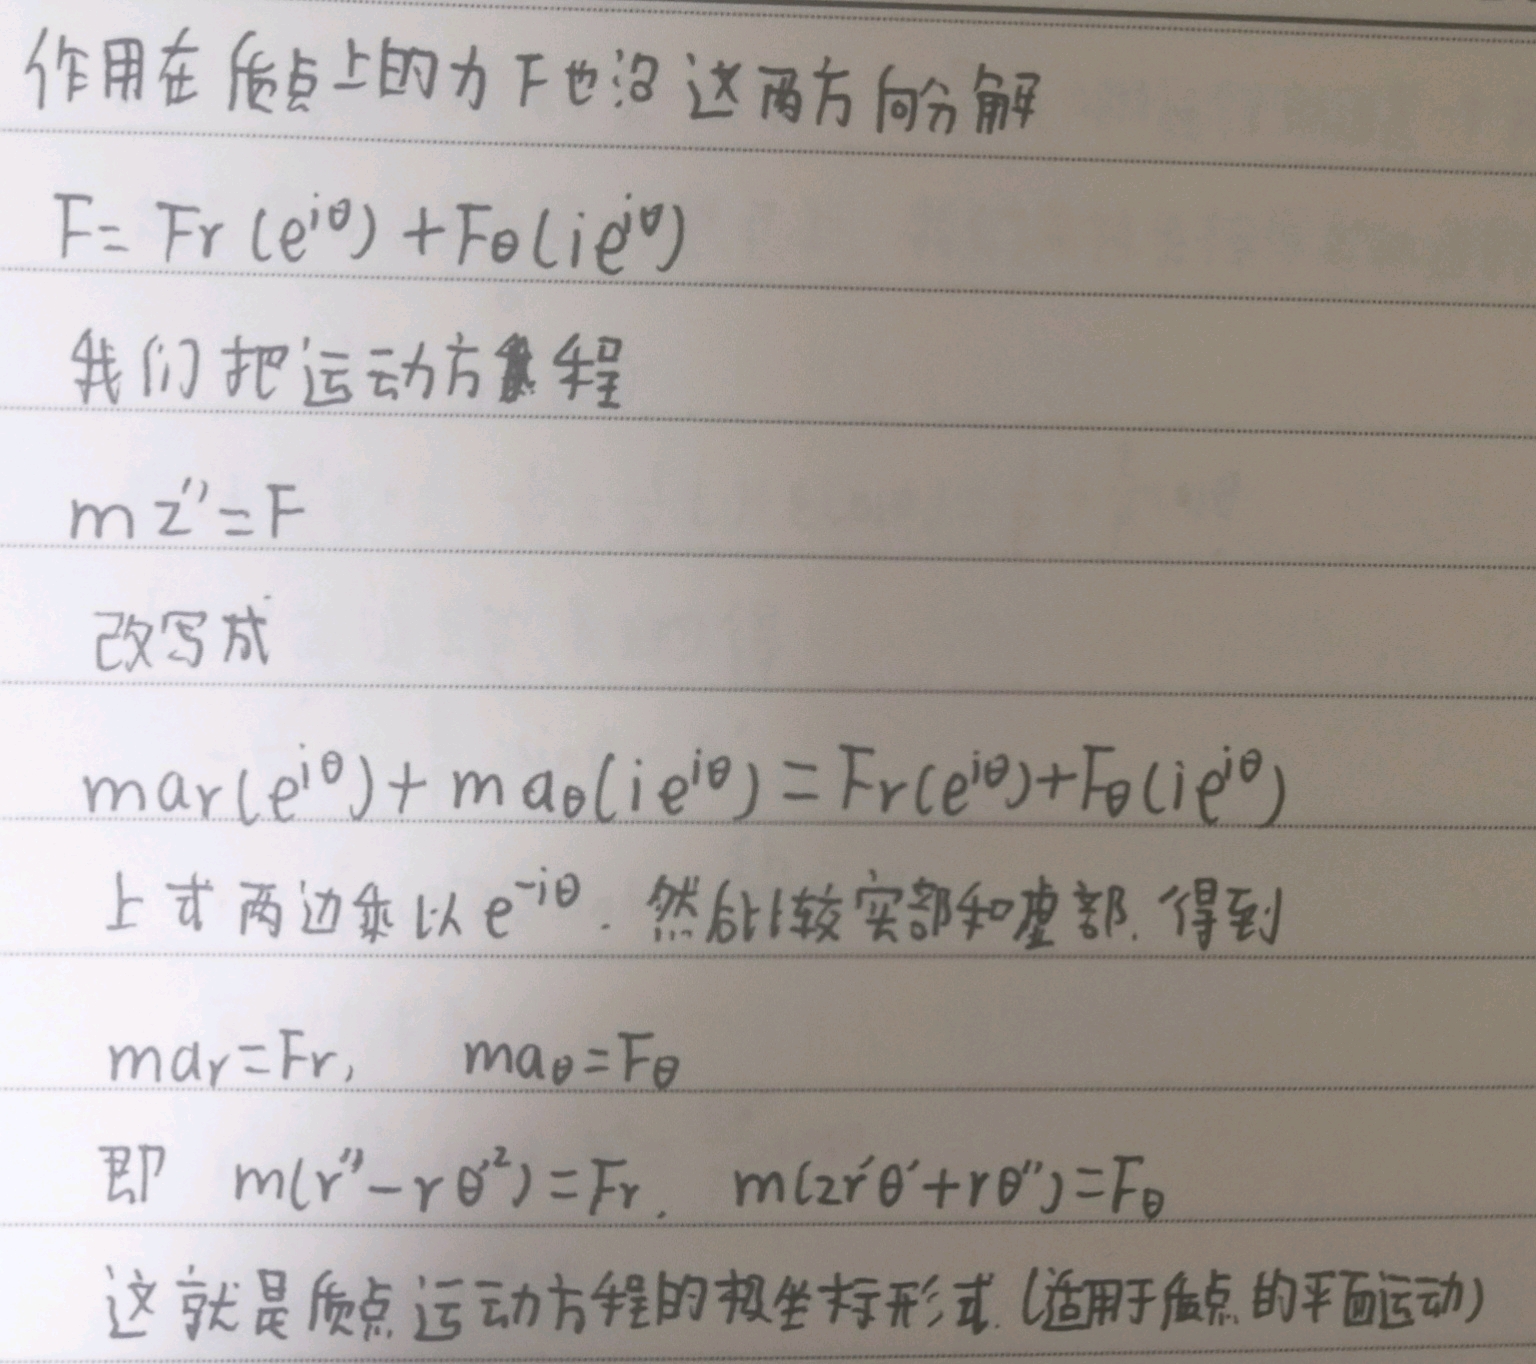 作用在质点上的力F也沿这两方向分解
F= Fr (e^{iθ}) + Fθ (ie^{iθ})
我们把运动方程
m z'' = F
改写成
mar(e^{iθ}) + maθ(ie^{iθ}) = Fr(e^{iθ}) + Fθ(ie^{iθ})
上式两边乘以 e^{-iθ}. 然后比较实部和虚部. 得到
mar=Fr, maθ=Fθ
即 m(r''-rθ'^2)=Fr. m(2r'θ'+rθ'')=Fθ
这就是质点运动方程的极坐标形式.(适用于质点的平面运动)